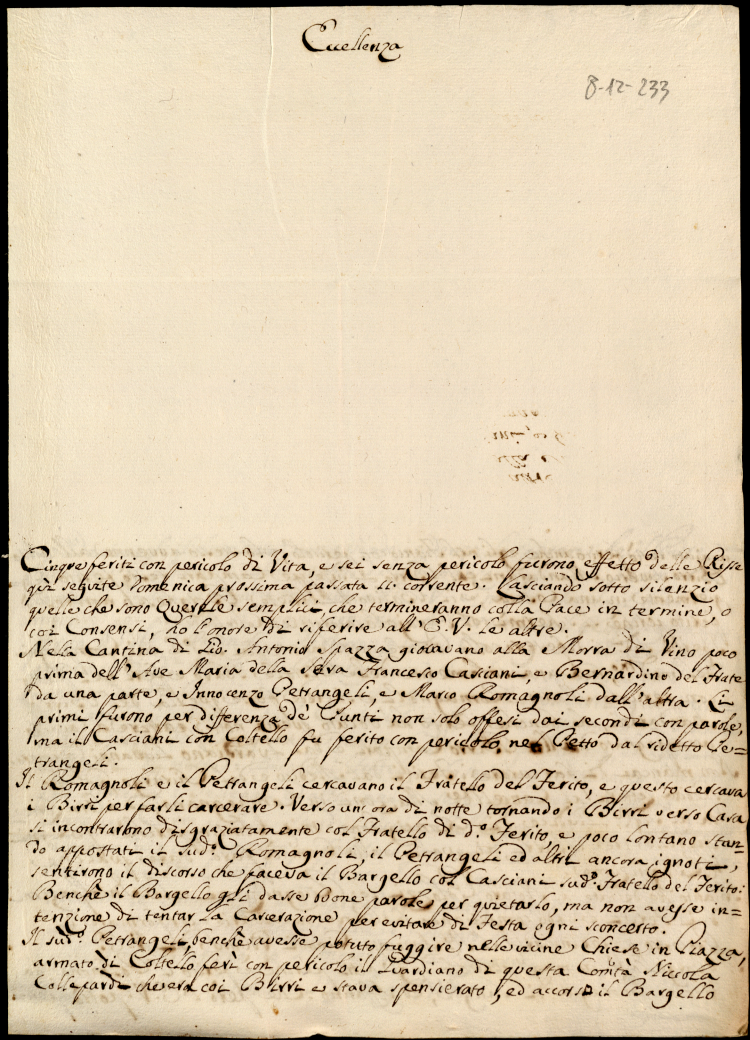 Eccellenza
8-12-233
Cinque feriti con pericolo di Vita, e sei senza pericolo furono effetto delle Risse
quì seguite Domenica prossima passata 11. corrente. Lasciando sotto silenzio
quelle che sono Querele semplici, che termineranno colla Pace in termine, o
coi Consensi, hò l'onore di riferire all'E. V. le altre.
Nella Cantina di Gio. Antonio Spazza giocavano alla Morra di Vino poco
prima dell'Ave Maria della Sera Francesco Casciani, e Bernardino del Frate
da una parte, e Innocenzo Petrangeli, e Marco Romagnoli dall'altra. Li
primi furono per differenza de' Punti non solo offesi dai secondi con parole,
ma il Casciani con Coltello fu ferito con pericolo nel Petto dal ridetto Pe=
trangeli.
Il Romagnoli e il Petrangeli cercavano il Fratello del Ferito, e questo cercava
i Birri per farli carcerare. Verso un ora di notte tornando i Birri verso Casa
si incontrarono disgraziatamente col Fratello di d.º Ferito e poco lontano stan=
do appostati il sud.º Romagnoli, il Petrangeli ed altri ancora ignoti,
sentirono il discorso che faceva il Bargello col Casciani sud.º Fratello del Ferito:
Benchè il Bargello gli dasse bone parole per quietarlo, ma non avesse in=
tenzione di tentar la Carcerazione per evitare di Festa ogni sconcerto.
Il sud.º Petrangeli, benchè avesse potuto fuggire nelle vicine Chiese in Piazza,
armato di Coltello ferì con pericolo il Guardiano di questa Comtà Niccola
Collepardi che era coi Birri e stava spensierato, ed accorso il Bargello